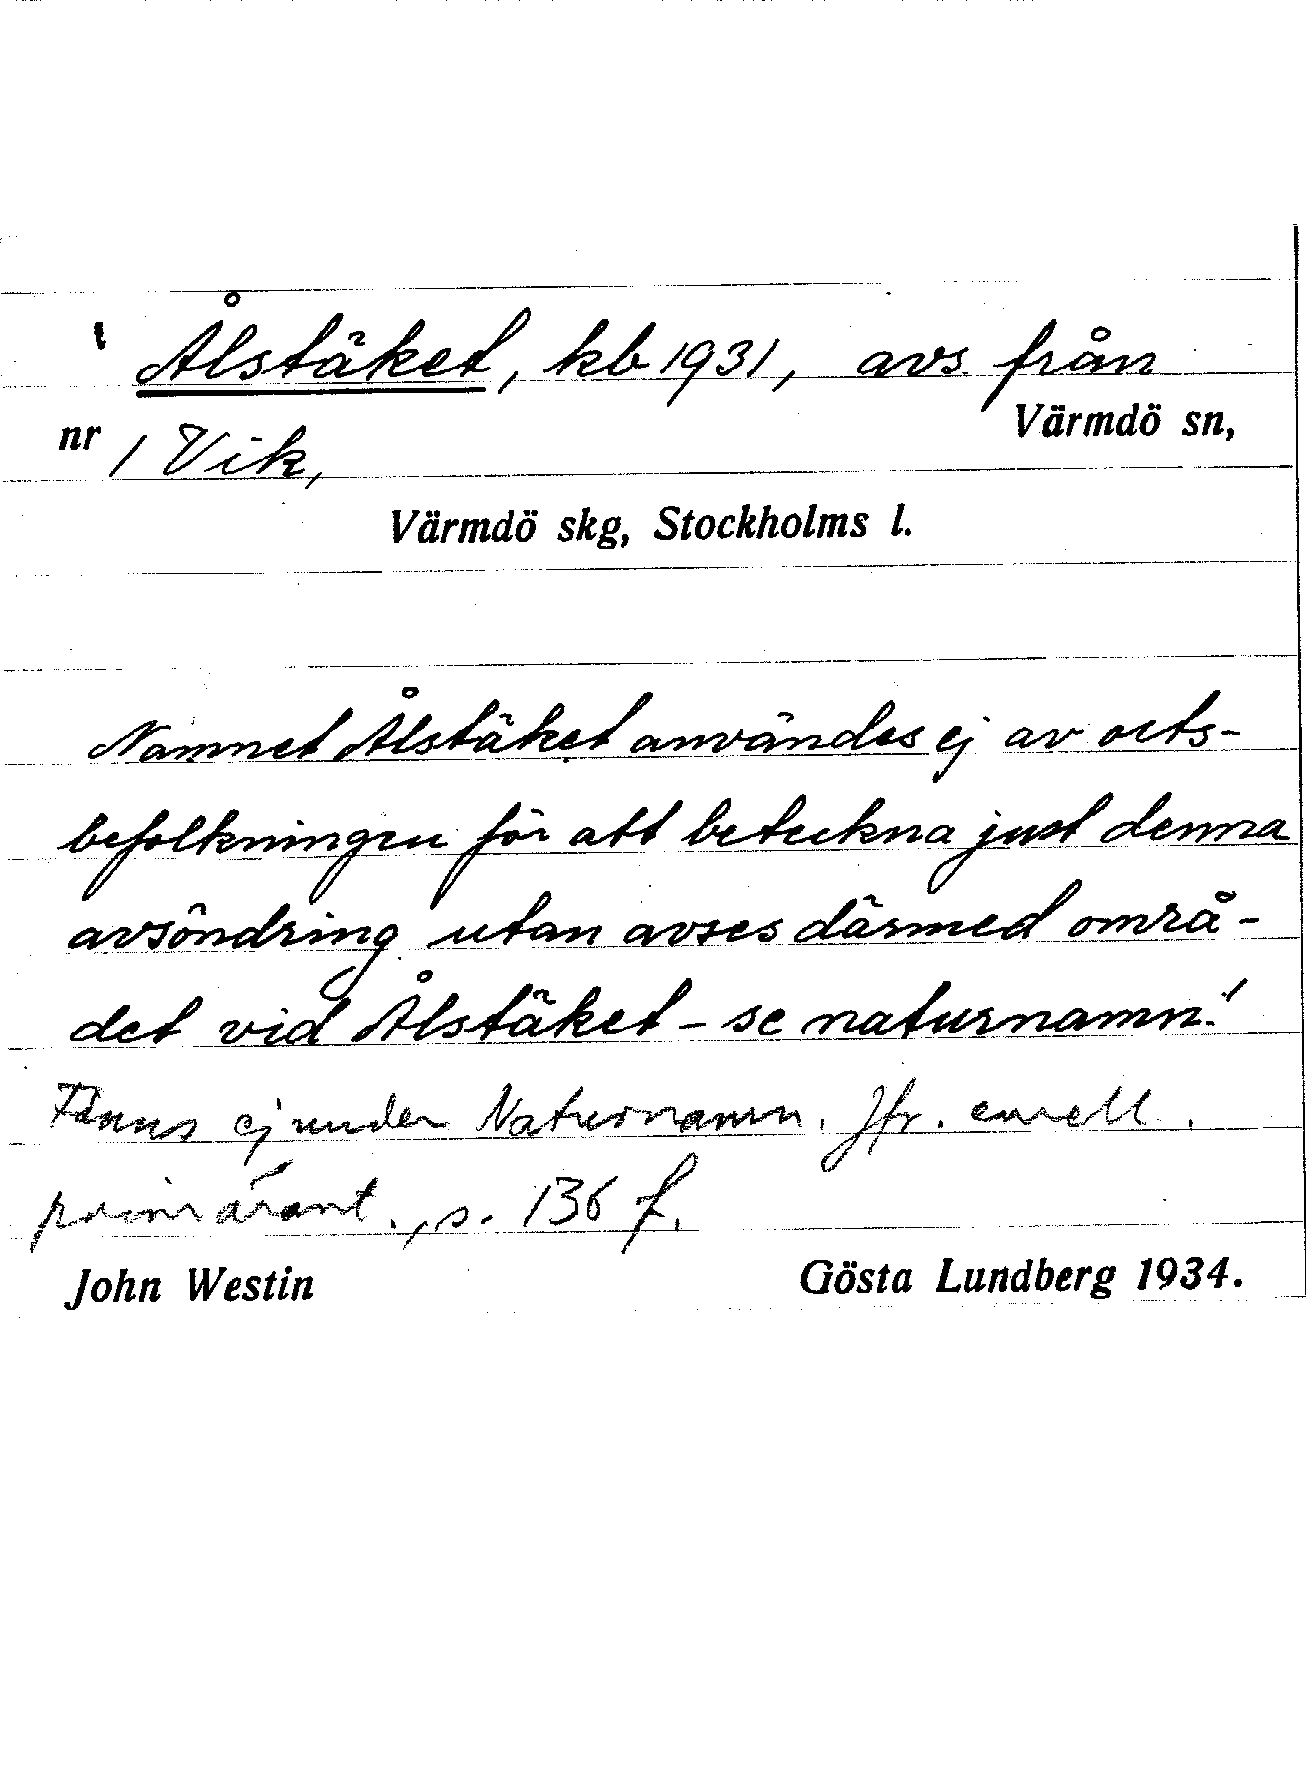 Ålstäket, kb 1931, avs från
Värmdö sn,
nr 1 Vik,
Värmdö skg, Stockholms l.
Namnet Ålstäket användes ej av orts-
befolkningen för att beteckna just denna
avsöndring utan avses därmed områ-
det vid Ålstäket - se naturnamn!
Finns ej under Naturnamn. Jfr. emell.
primärant., s. 136 f.
John Westin
Gösta Lundberg 1934.